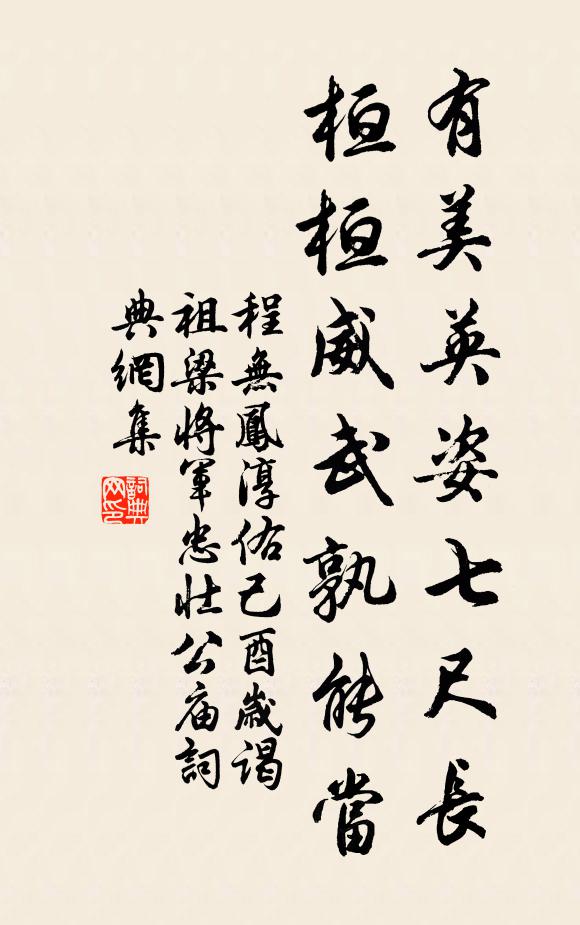 有美英姿七尺長
桓桓威武孰能當
程無鳳淳佑己酉歲謁
祖梁將軍忠壯公廟詞
典網集
詞典
网印